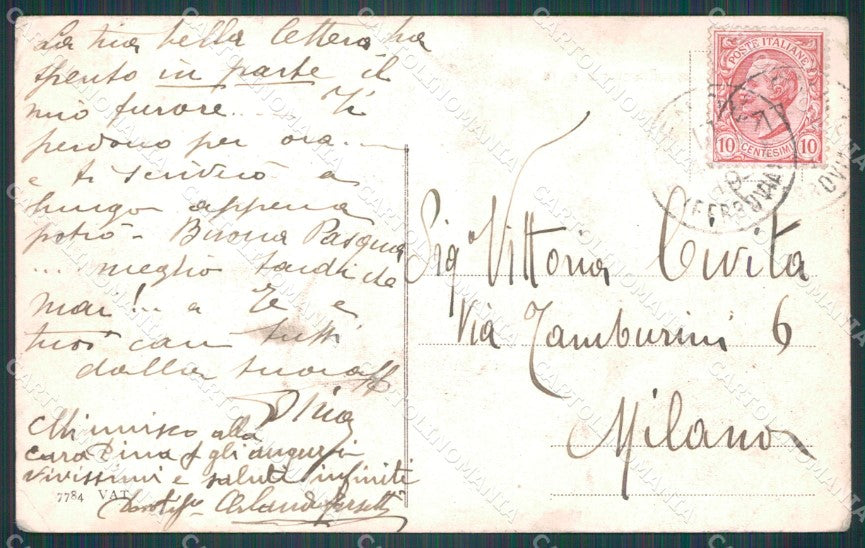 La tua bella lettera ha
spento in parte il
mio furore.... Ti
perdono per ora....
e ti scriverò a
lungo appena
potrò - Buona Pasqua
... meglio tardi che
mai!.. a Te e
tuoi cari tutti
dalla tua aff
Dina
Mi unisco alla
cara Dina gli auguri
vivissimi e saluti infiniti
7784 VAT
Sigª Vittoria Civita
Via Tamburini 6
Milano
POSTE ITALIANE
10 CENTESIMI 10
(FERROVIA)
CARTOLINOMANIA